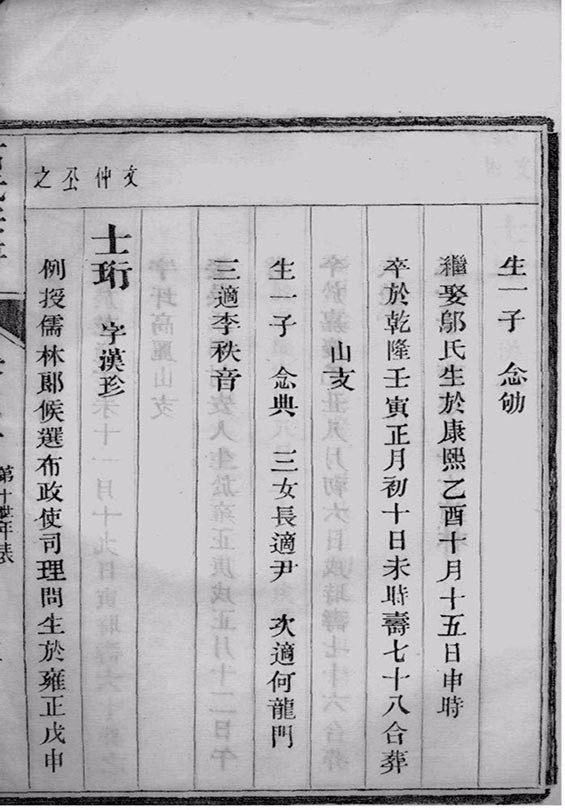 文仲公之
生一子 念劬
繼娶鄔氏生於康熙乙酉十月十五日申時
卒於乾隆壬寅正月初十日未時壽七十八合葬
山支
生一子 念典 三女長適尹 次適何龍門
三適李秩音
士珩 字漢珍
例授儒林郎候選布政使司理問生於雍正戊申
第十世年表